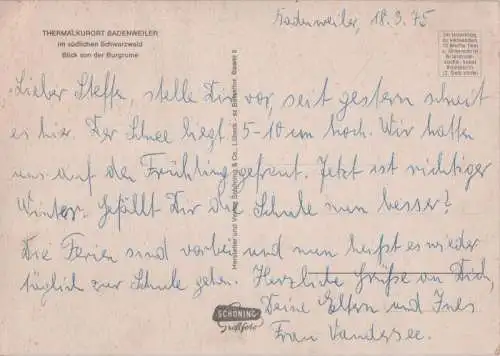 THERMALKURORT BADENWEILER
im südlichen Schwarzwald
Blick von der Burgruine
Badenweiler, 18.3.75
Lieber Steffen, stelle Dir vor, seit gestern schneit
es hier. Der Schnee liegt 5-10 cm hoch. Wir hatten
uns auf den Frühling gefreut. Jetzt ist richtiger
Winter. Gefällt Dir die Schule nun besser?
Die Ferien sind vorbei und nun heißt es wieder
täglich zur Schule gehen. Herzliche Grüße an Dich,
Deine Eltern und Ines
Frau
Hersteller und Verlag Schöning & Co., Lübeck
SCHÖNING